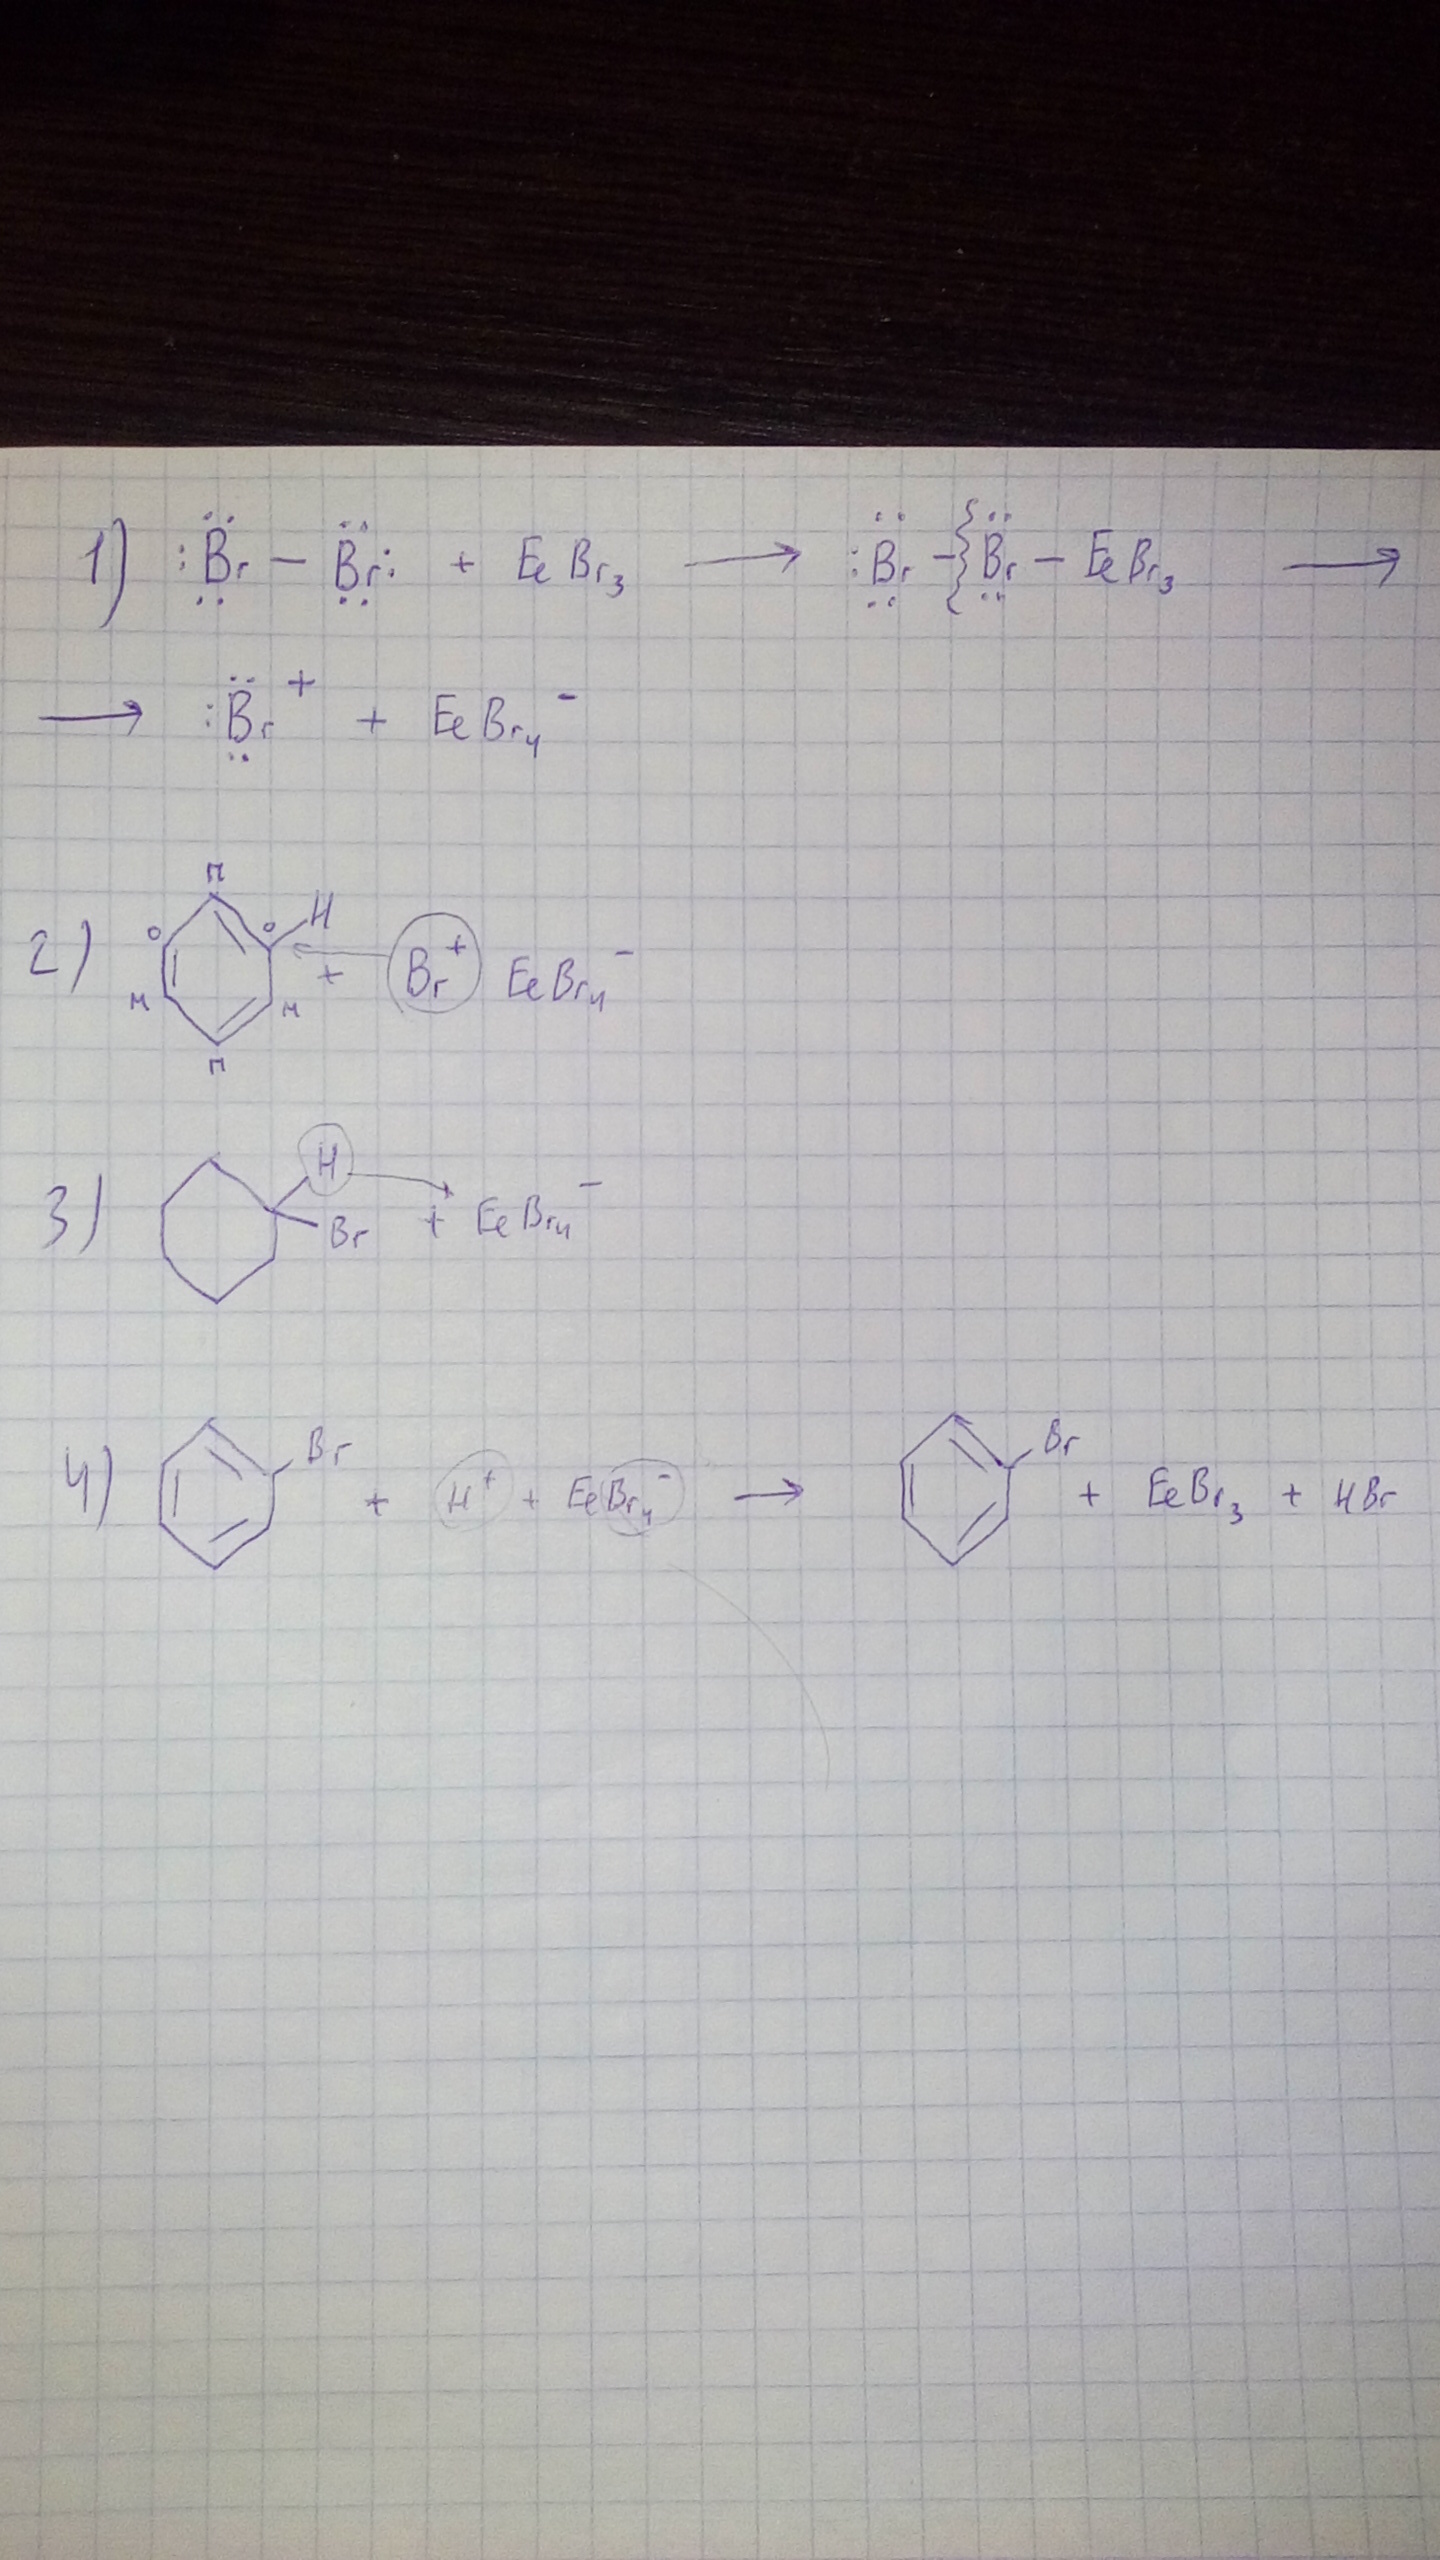 1) :Br - Br: + FeBr₃ → :Br - Br - FeBr₃ →
→ :Br⁺ + FeBr₄⁻
п
2) о о H + Br⁺ FeBr₄⁻
м м
п
3) H Br + FeBr₄⁻
4) Br + H⁺ + FeBr₄⁻ → Br + FeBr₃ + HBr